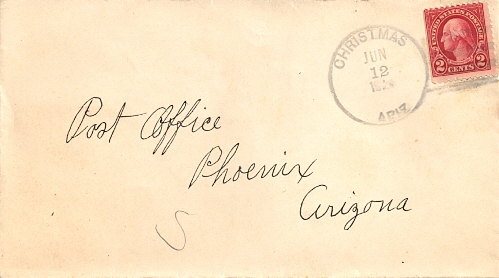 CHRISTMAS
JUN
12
ARIZ.
UNITED STATES POSTAGE
2 CENTS 2
Post Office
Phoenix
Arizona